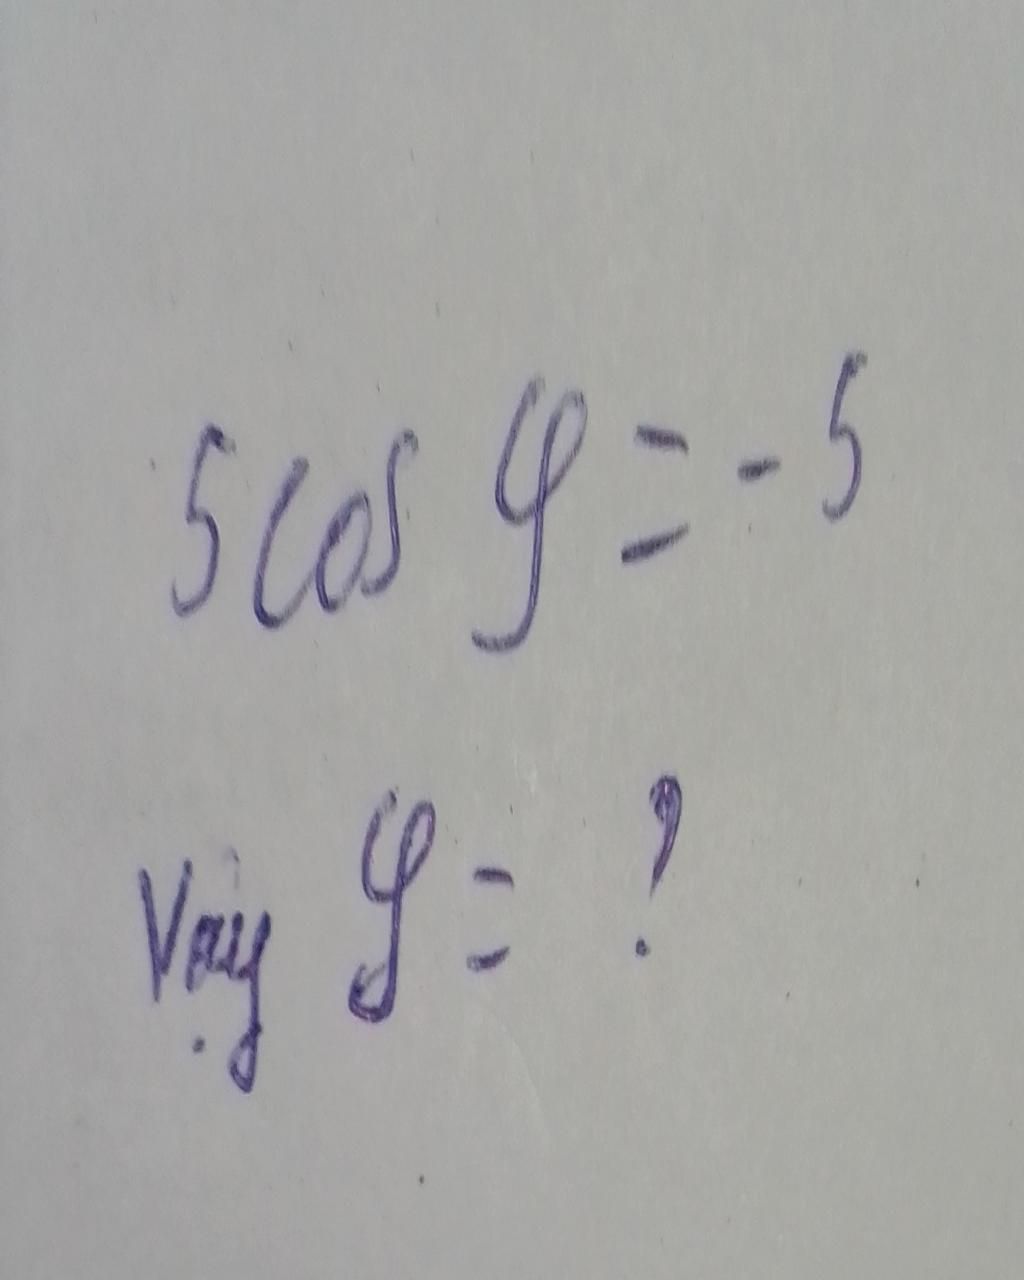 5cos φ = - 5
Vậy φ = ?